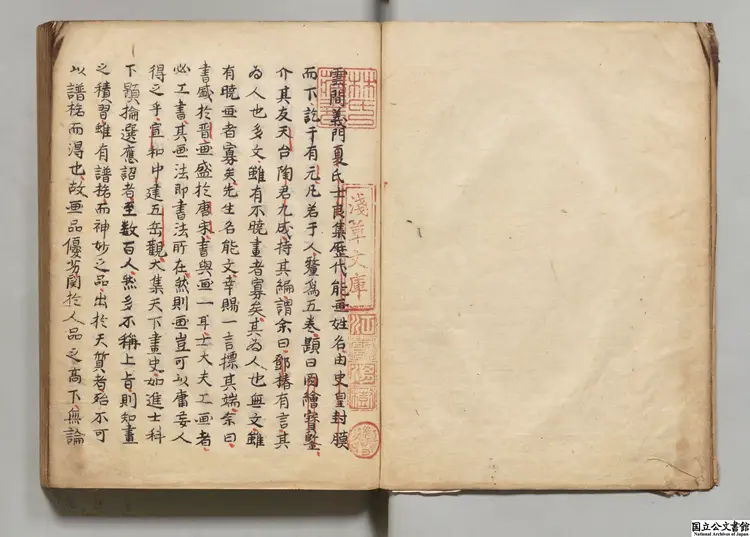 雲間義門夏氏士良集歴代能画姓名由史皇封膜
而下訖于有元凡若干人釐爲五巻題曰図繪寳鑒
介其友天台陶君九成持其編謂余曰鄧椿有言其
為人也多文雖有不曉畫者寡矣其為人也無文雖
有曉画者寡矣先生名能文幸賜一言標其端余曰
書盛於晋画盛於唐宋書與画一耳士大夫工画者
必工書其画法即書法所在然則画豈可以庸妄人
得之乎宣和中建五岳觀大集天下畫史如進士科
下題掄選應詔者至数百人然多不稱上旨則知畫
之積習雖有譜格而神妙之品出於天質者殆不可
以譜格而得也故画品優劣関於人品之高下無論
林氏
淺草文庫
国立公文書館
National Archives of Japan